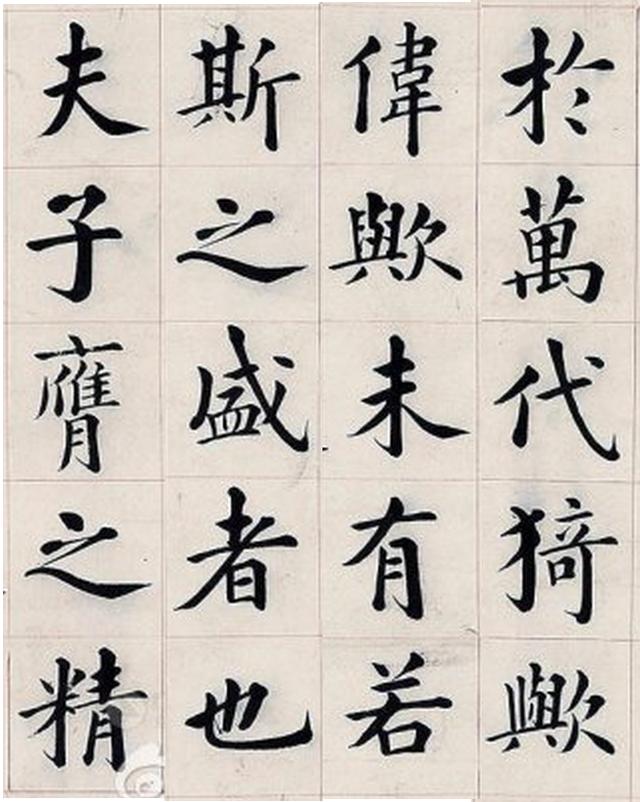 於萬代猗歟
偉歟未有若
斯之盛者也
夫子膺之精